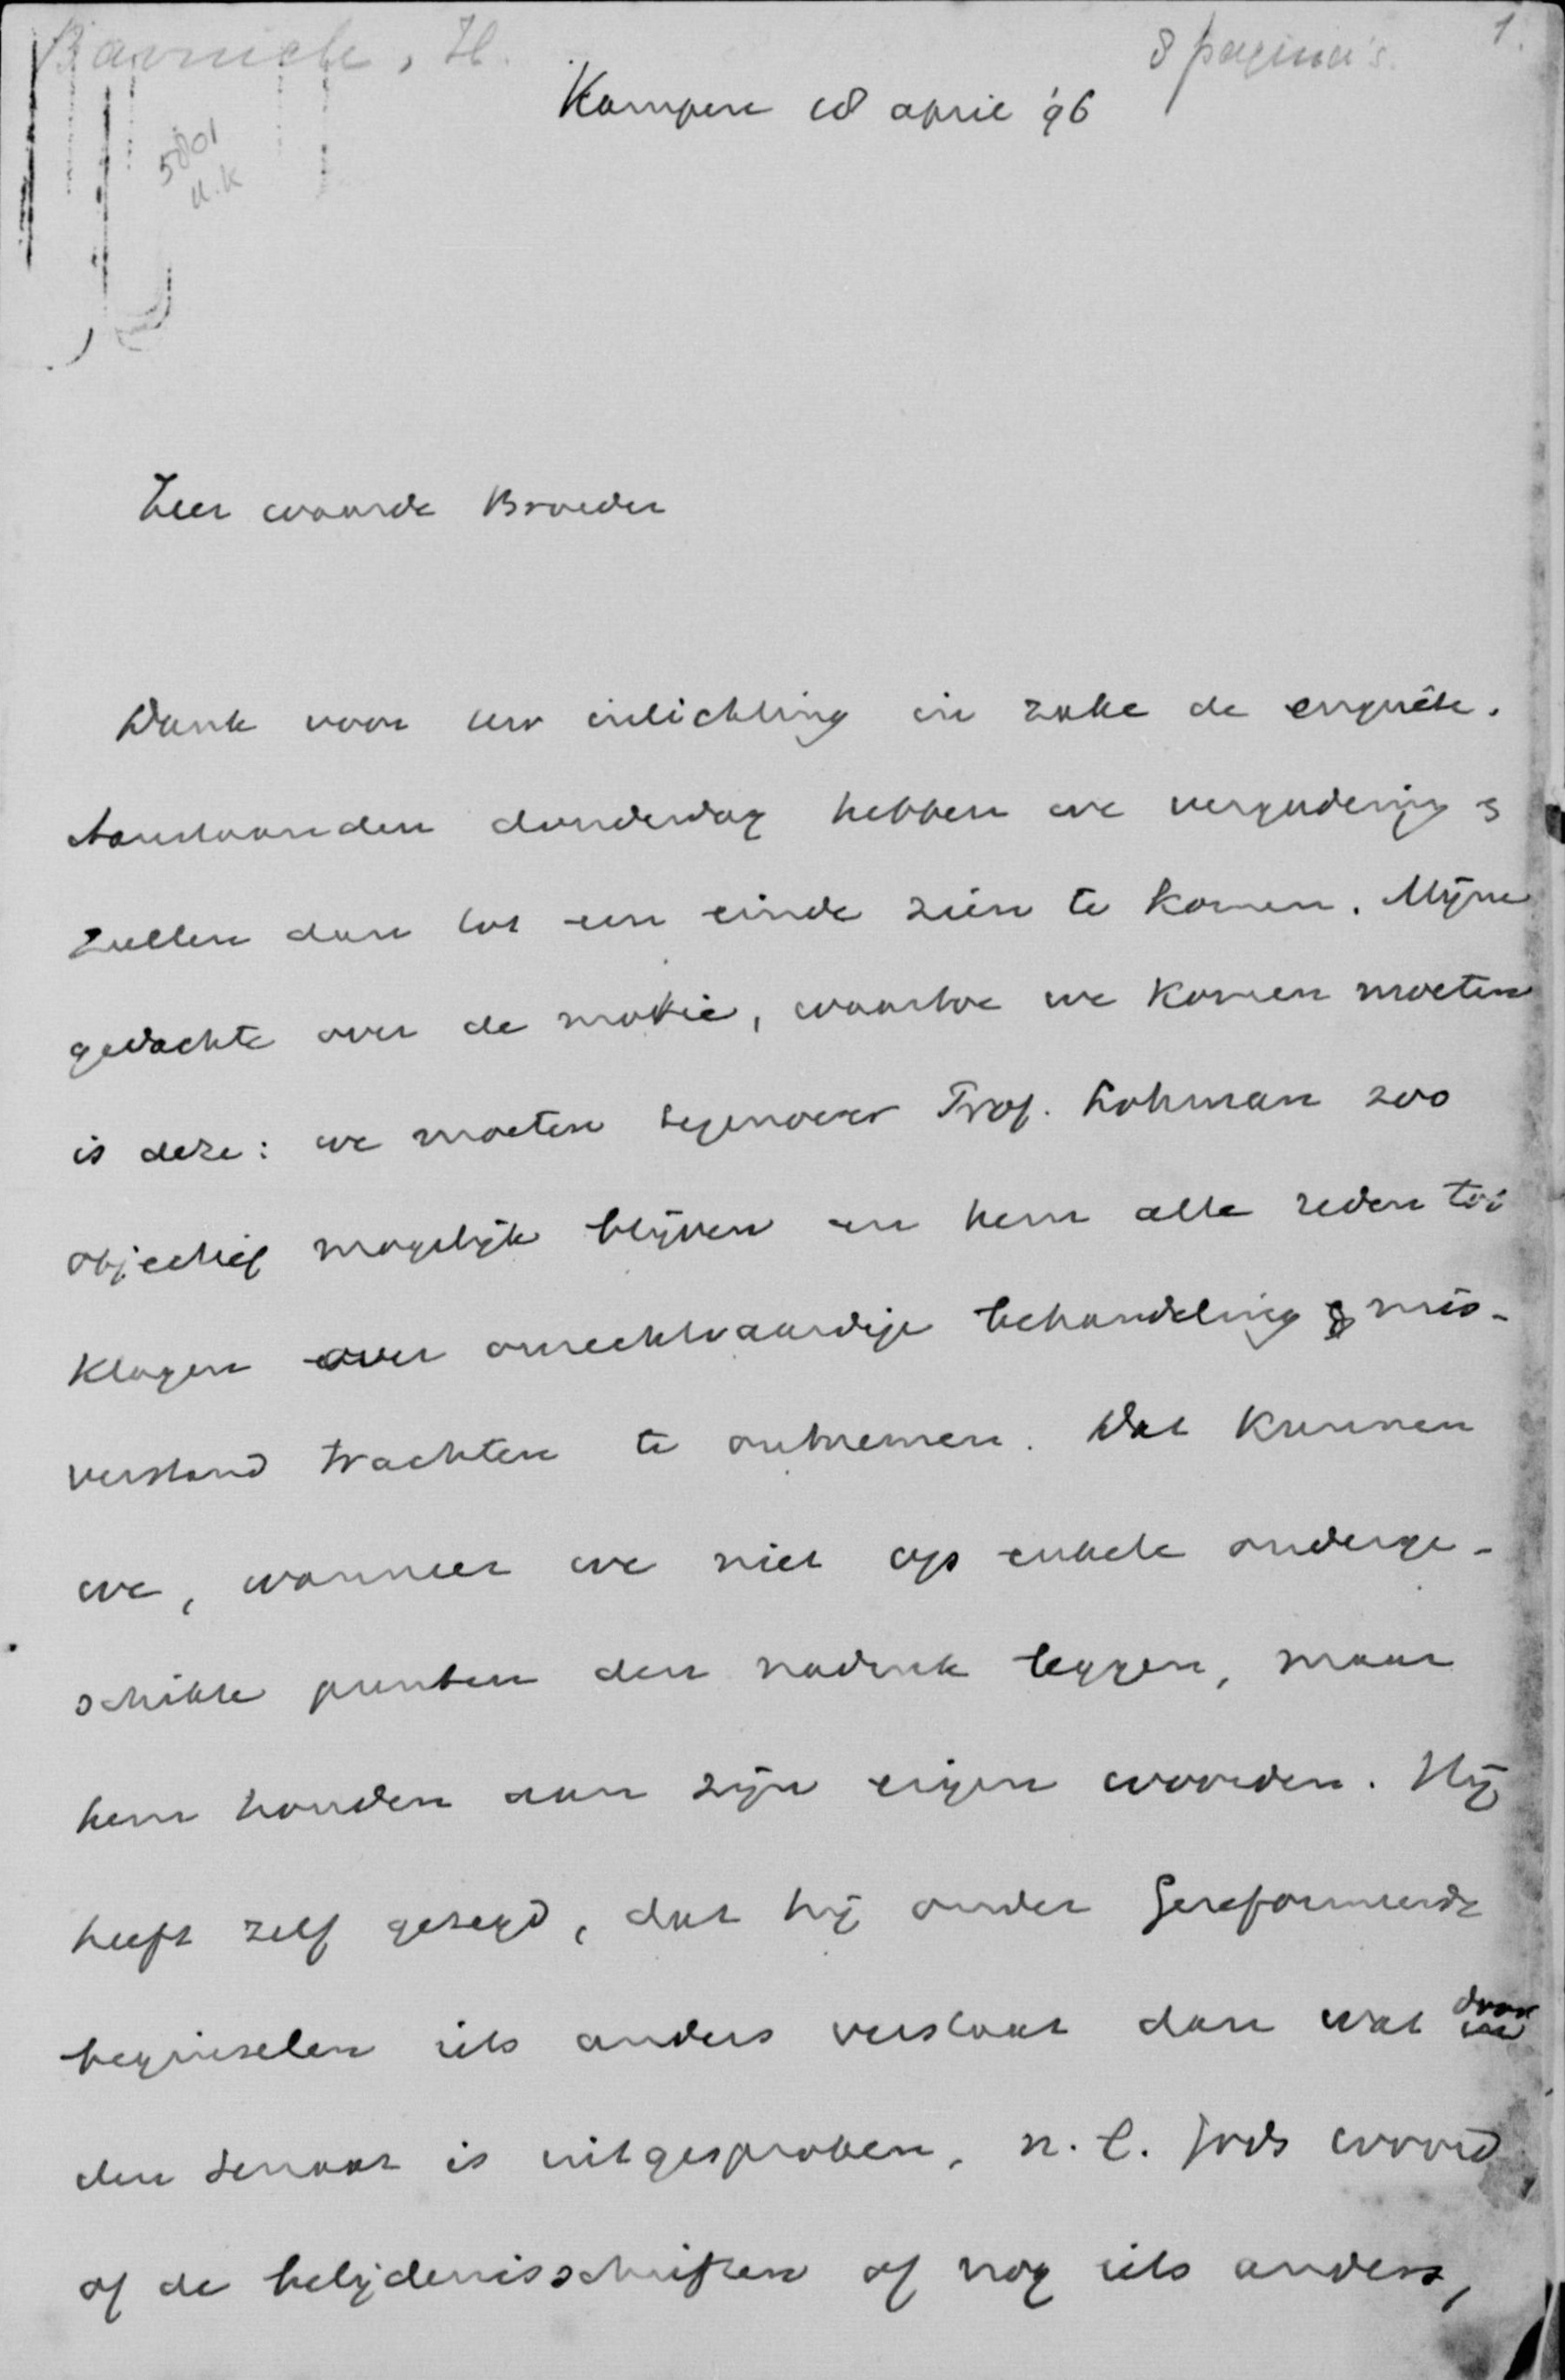 Bavinck, H.
8 pagina's.
1.
Kampen 18 april '96
5801
U.K
Zeer waarde Broeder
Dank voor uw inlichting in zake de enquête.
Aanstaanden donderdag hebben we vergadering &
zullen dan tot een einde zien te komen. Mijne
gedachte over de motie, waartoe we komen moeten
is deze: we moeten tegenover Prof. Lohman zoo
objectief mogelijk blijven en hem alle reden tot
klagen over onrechtvaardige behandeling & mis-
verstand trachten te ontnemen. Dat kunnen
we, wanneer we niet op enkele onderge-
schikte punten den nadruk leggen, maar
hem houden aan zijn eigen woorden. Hij
heeft zelf gezegd, dat hij onder Gereformeerde
beginselen iets anders verstaat dan wat door
den senaat is uitgesproken, n.l. Gods woord,
of de belijdenisschriften of nog iets anders,